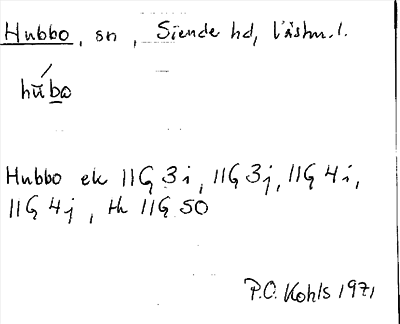 Hubbo, sn, Siende hd, Västm. l.
hū́bo
Hubbo ek 11G 3i, 11G 3j, 11G 4i,
11G 4j, th 11G 50
P.O. Kohls 1971